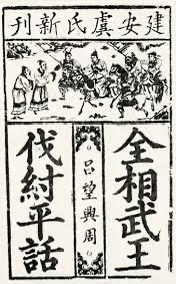 建安虞氏新刊
全相武王
吕望興周
伐紂平話